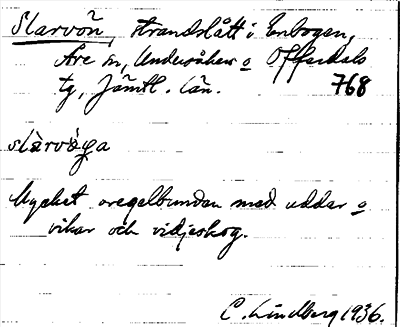 Slarvön, strandslått i Enbogen,
Åre sn, Undersåkers o Offerdals
tg, Jämtl. län. 768
slàrvö̀ɳa
Mycket oregelbunden med uddar o
vikar och vidjeskog.
C. Lindberg 1936.